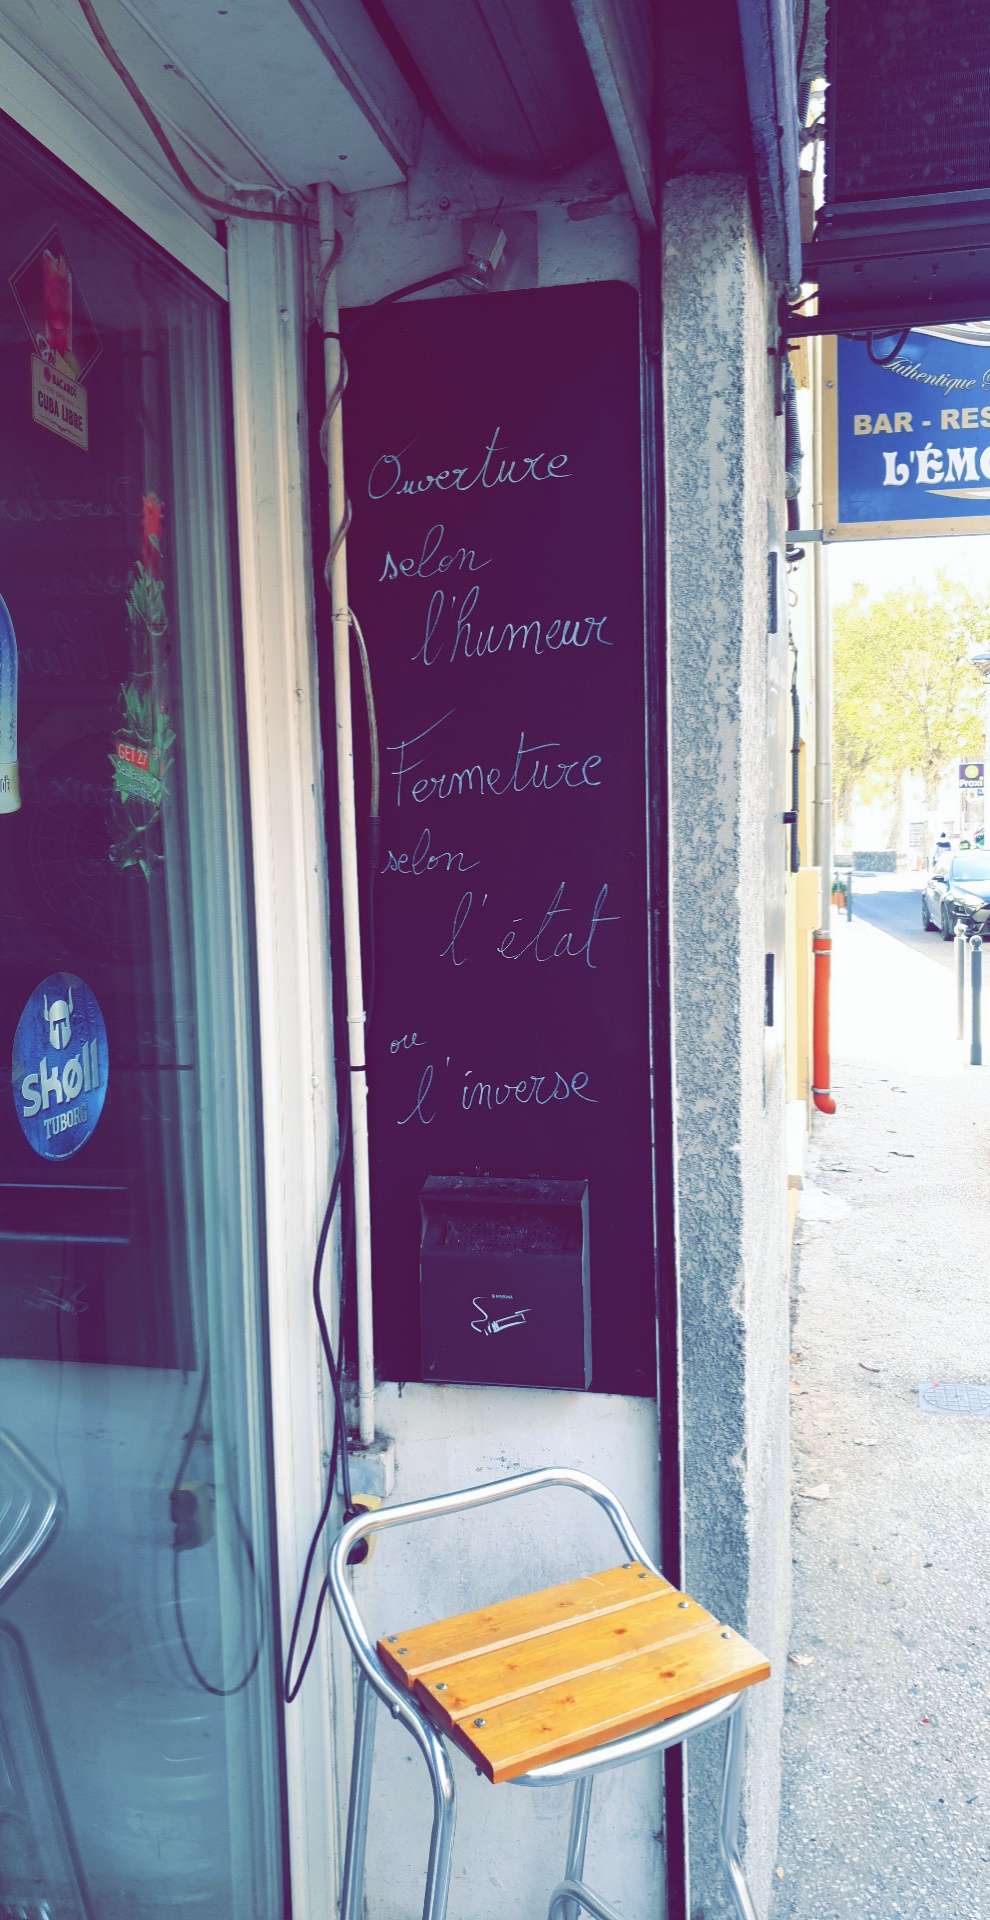 Ouverture
selon
l'humeur
Fermeture
selon
l'état
ou
l'inverse
BACARDÍ
CUBA LIBRE
GET 27
skøll
TUBORG
Authentique
BAR - RES
L'ÉMO
Proxi